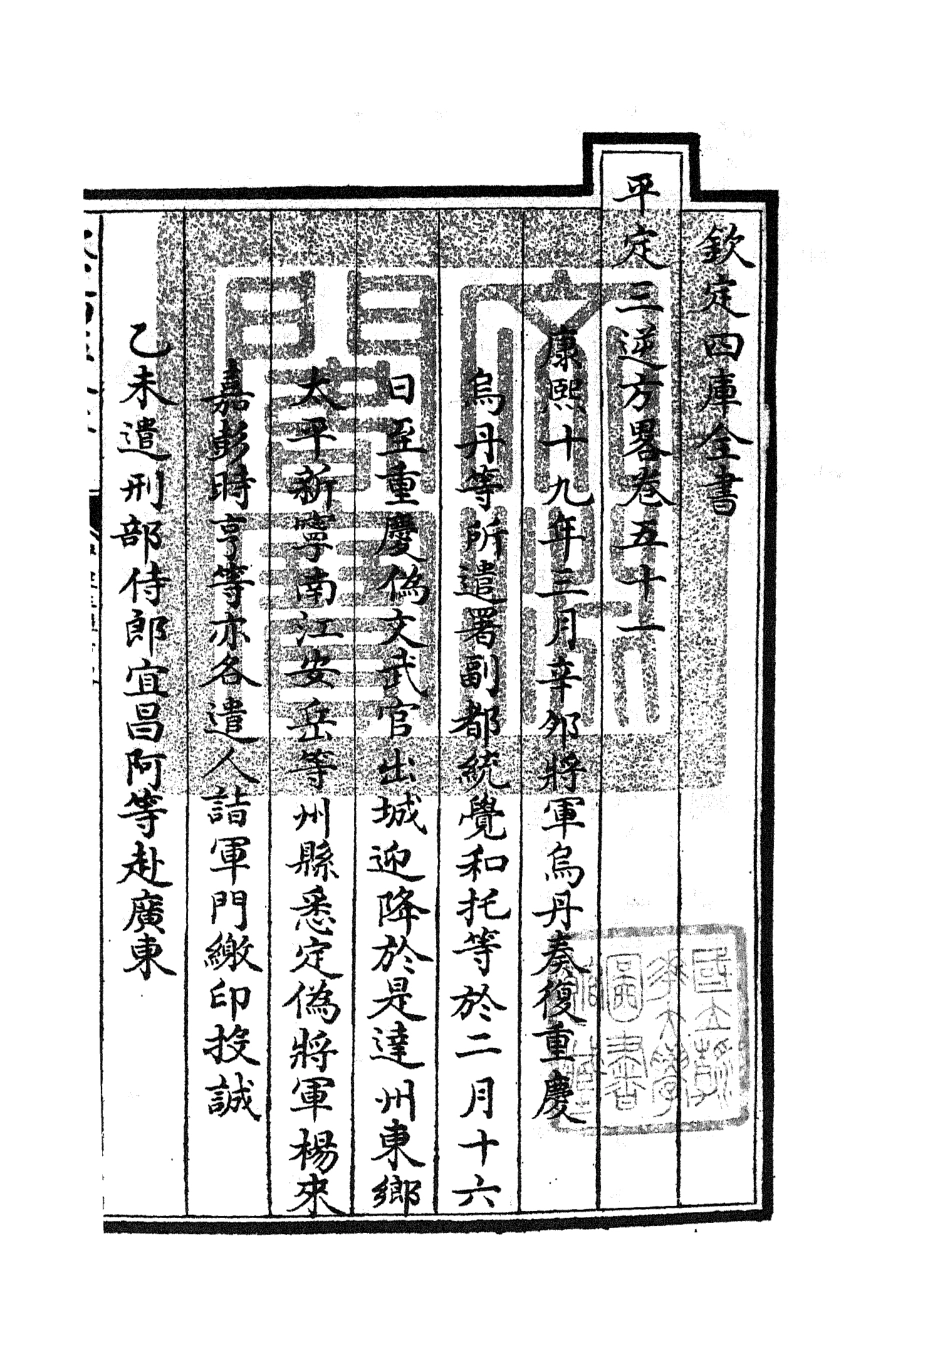 欽定四庫全書
平定三逆方畧卷五十一
康熙十九年三月辛邜將軍烏丹奏復重慶
烏丹等所遣署副都統覺和托等於二月十六
日至重慶偽文武官出城迎降於是達州東鄉
太平新寧南江安岳等州縣悉定偽將軍楊來
嘉彭時亨等亦各遣人詣軍門繳印投誠
乙未遣刑部侍郎宜昌阿等赴廣東